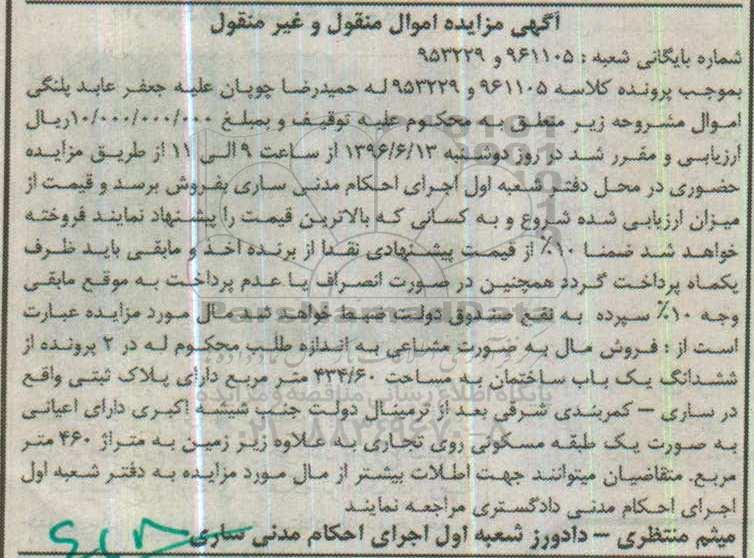 آگهی مزایده اموال منقول و غیر منقول
شماره بایگانی شعبه : ۹۶۱۱۰۵ و ۹۵۳۲۲۹
بموجب پرونده کلاسه ۹۶۱۱۰۵ و ۹۵۳۲۲۹ له حمیدرضا چوپان علیه جعفر عابد پلنگی
اموال مشروحه زیر متعلق به محکوم علیه توقیف و بمبلغ ۱۰/۰۰۰/۰۰۰/۰۰۰ریال
ارزیابی و مقرر شد در روز دوشنبه ۱۳۹۶/۶/۱۳ از ساعت ۹ الی ۱۱ از طریق مزایده
حضوری در محل دفتر شعبه اول اجرای احکام مدنی ساری بفروش برسد و قیمت از
میزان ارزیابی شده شروع و به کسانی که بالاترین قیمت را پیشنهاد نمایند فروخته
خواهد شد ضمنا ۱۰٪ از قیمت پیشنهادی نقدا از برنده اخذ و مابقی باید ظرف
یکماه پرداخت گردد همچنین در صورت انصراف یا عدم پرداخت به موقع مابقی
وجه ۱۰٪ سپرده به نفع صندوق دولت ضبط خواهد شد مال مورد مزایده عبارت
است از : فروش مال به صورت مشاعی به اندازه طلب محکوم له در ۲ پرونده از
ششدانگ یک باب ساختمان به مساحت ۴۳۴/۶۰ متر مربع دارای پلاک ثبتی واقع
در ساری – کمربندی شرقی بعد از ترمینال دولت جنب شیشه اکبری دارای اعیانی
به صورت یک طبقه مسکونی روی تجاری به علاوه زیر زمین به متراژ ۴۶۰ متر
مربع. متقاضیان میتوانند جهت اطلات بیشتر از مال مورد مزایده به دفتر شعبه اول
اجرای احکام مدنی دادگستری مراجعه نمایند
میثم منتظری – دادورز شعبه اول اجرای احکام مدنی ساری
ParsNamadData
پایگاه اطلاع رسانی مناقصه و مزایده
۰۲۱-۸۸۳۴۹۶۷۰-۵